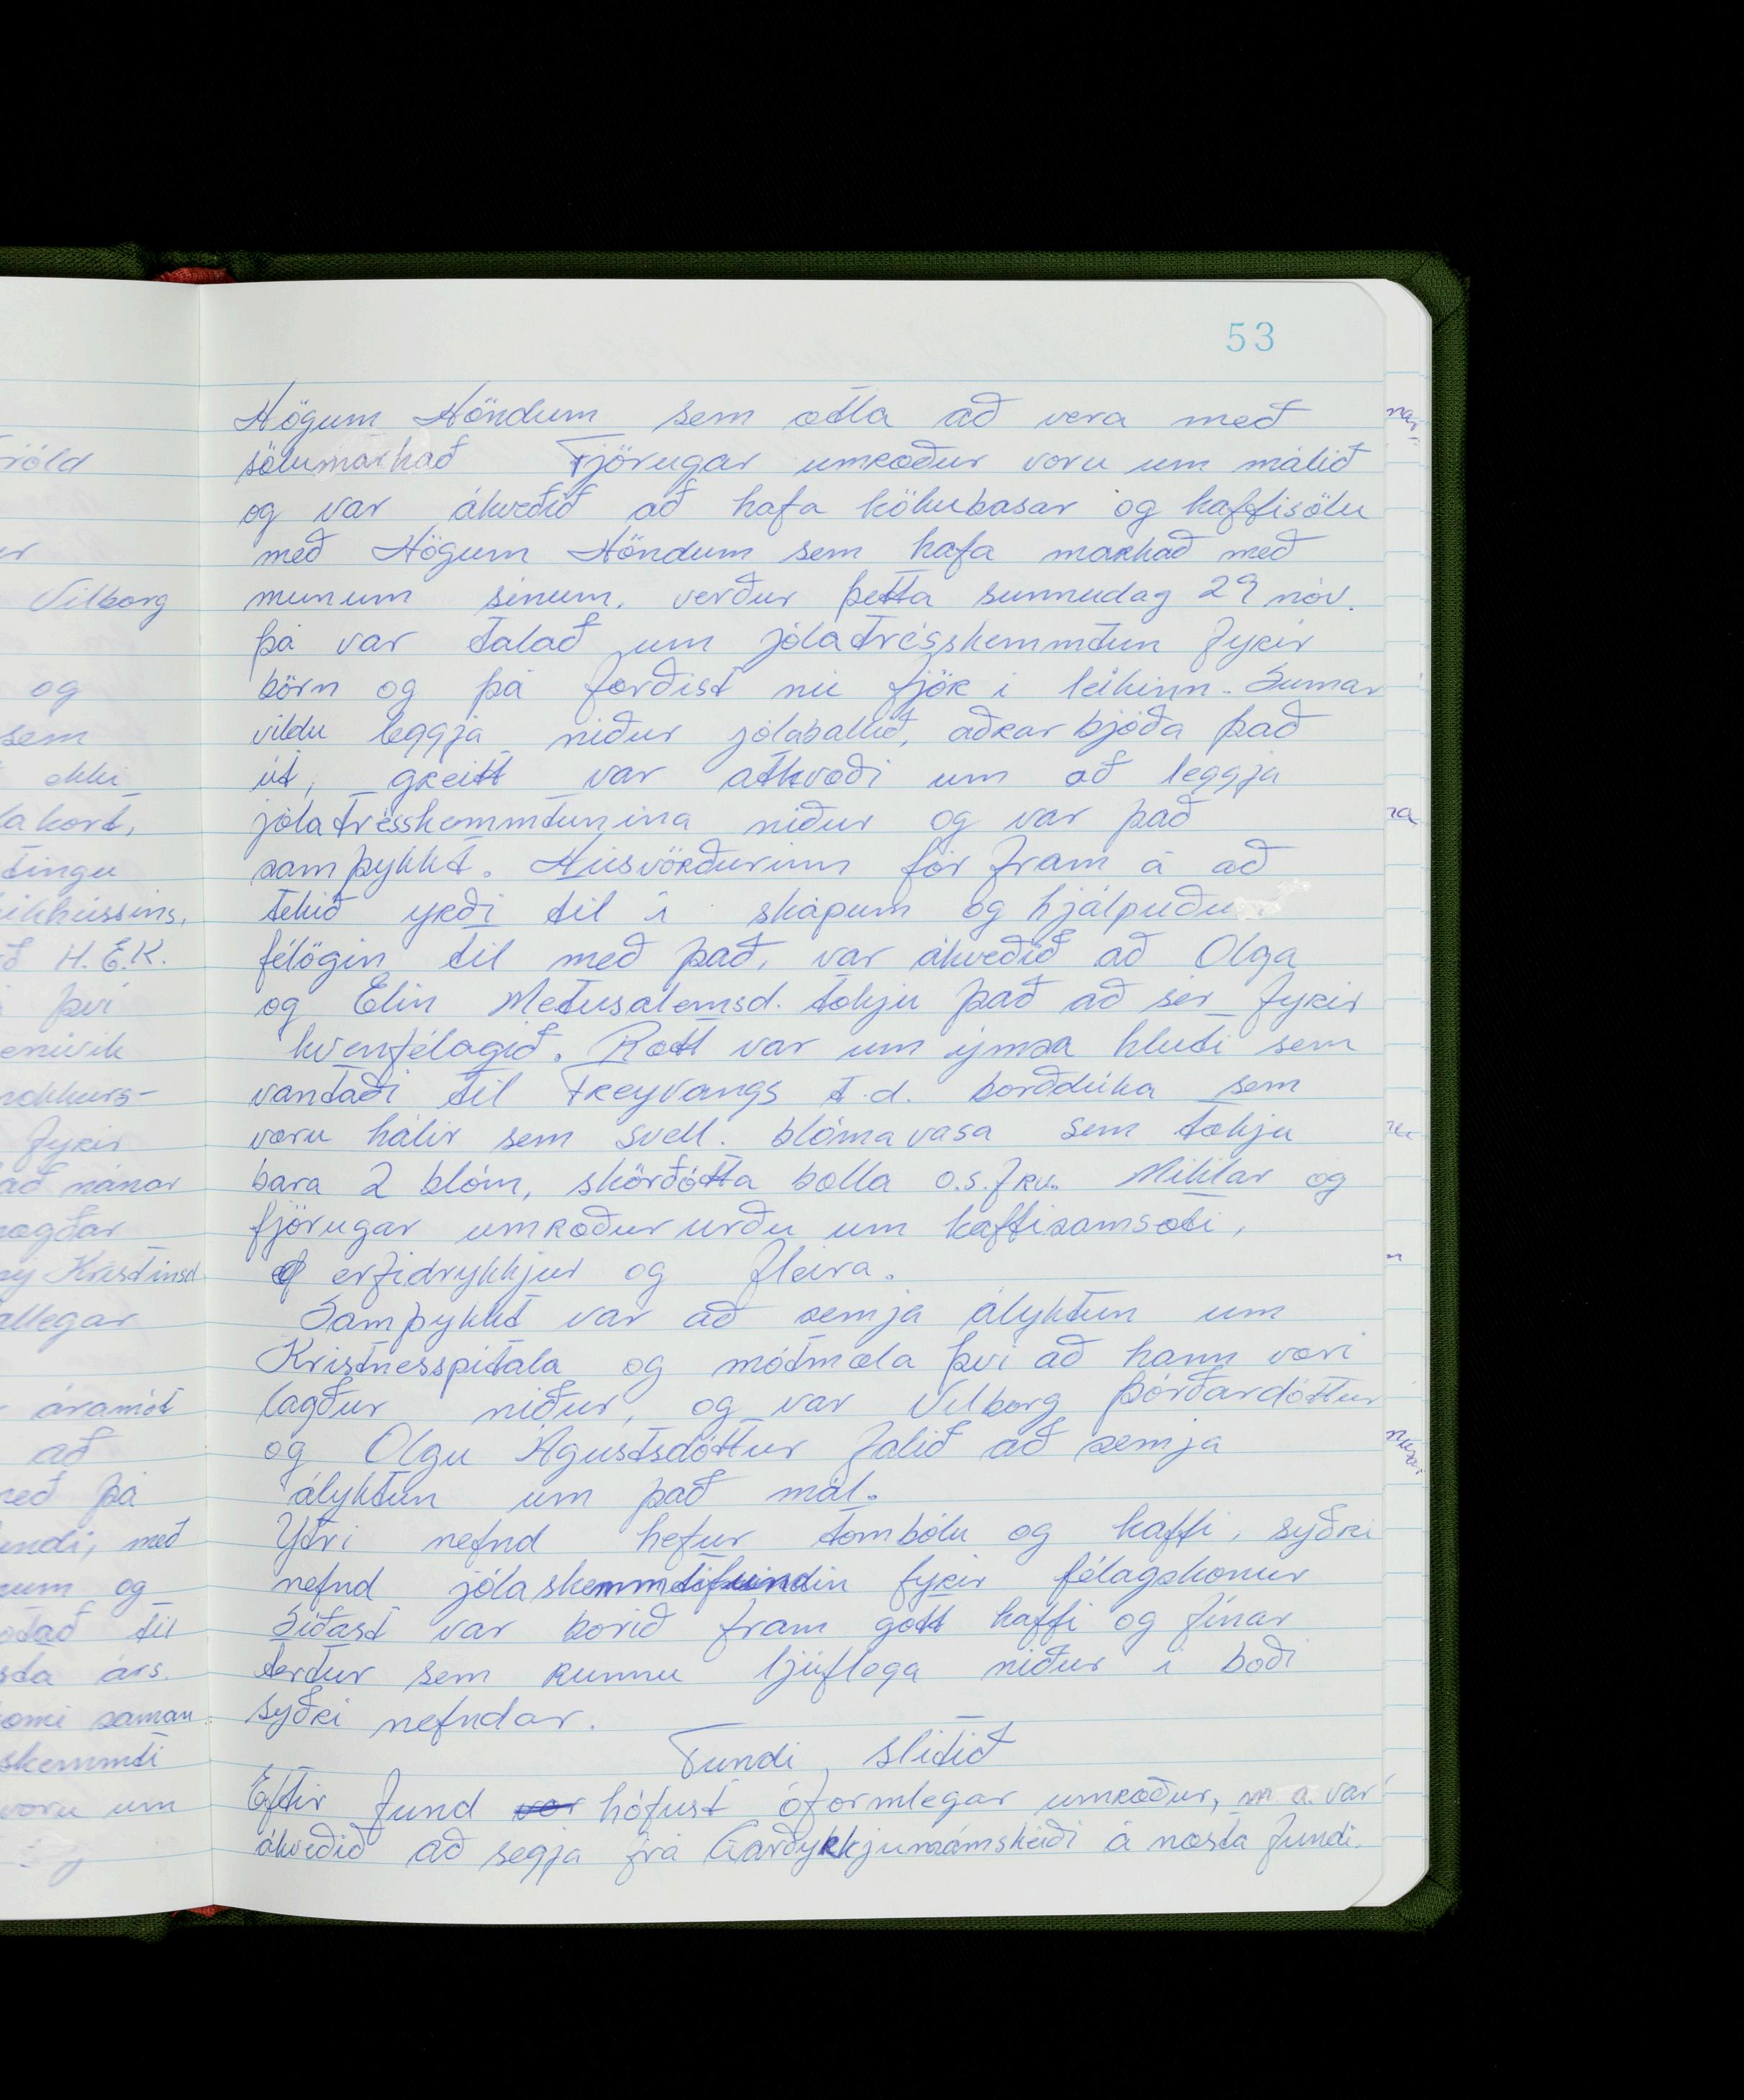 53
Högum Höndum sem ætla að vera með
sölumarkað Fjörugar umræður voru um málið
og var ákveðið að hafa kökubasar og kaffisölu
með Högum Höndum sem hafa markað með
munum sínum, verður þetta sunnudag 29 nóv.
þá var talað um jólatrésskemmtun fyrir
börn og þá færðist nú fjör í leikinn. Sumar
vildu leggja niður jólaballið, aðrar bjóða það
út, greitt var atkvæði um að leggja
jólatrésskemmtunina niður og var það
samþykkt. Húsvörðurinn fór fram á að
tekið yrði til í skápum og hjálpuðu
félögin til með það, var ákveðið að Olga
og Elín Metusalemsd. tækju það að sér fyrir
kvenfélagið. Rætt var um ýmsa hluti sem
vantaði til Freyvangs t.d. borðdúka sem
væru hálir sem svell. blómavasa sem tækju
bara 2 blóm, skörðótta bolla o.s.frv. Miklar og
fjörugar umræður urðu um kaffisamsæti,
erfidrykkjur og fleira.
Samþykkt var að semja ályktun um
Kristnesspítala og mótmæla því að hann væri
lagður niður, og var Vilborg Þórðardóttur
og Olgu Ágústsdóttur falið að semja
ályktun um það mál.
Ytri nefnd hefur tombólu og kaffi, syðri
nefnd jólaskemmtifundin fyrir félagskonur
Síðast var borið fram gott kaffi og fínar
tertur sem runnu ljúflega niður í boði
syðri nefndar.
Fundi slitið
Eftir fund var hófust óformlegar umræður, m a. var
ákveðið að segja frá Garðyrkjunámskeiði á næsta fundi.
röld
Vilborg
og
sem
ekki
akort,
tingu
ikhússins,
H.E.K.
því
enivík
nokkurs-
fyrir
að nánar
ragðar
ny Kristinsd
allegar
áramót
að
með þá
undi, með
um og
otað til
sta árs.
omi saman
skemmti
voru um